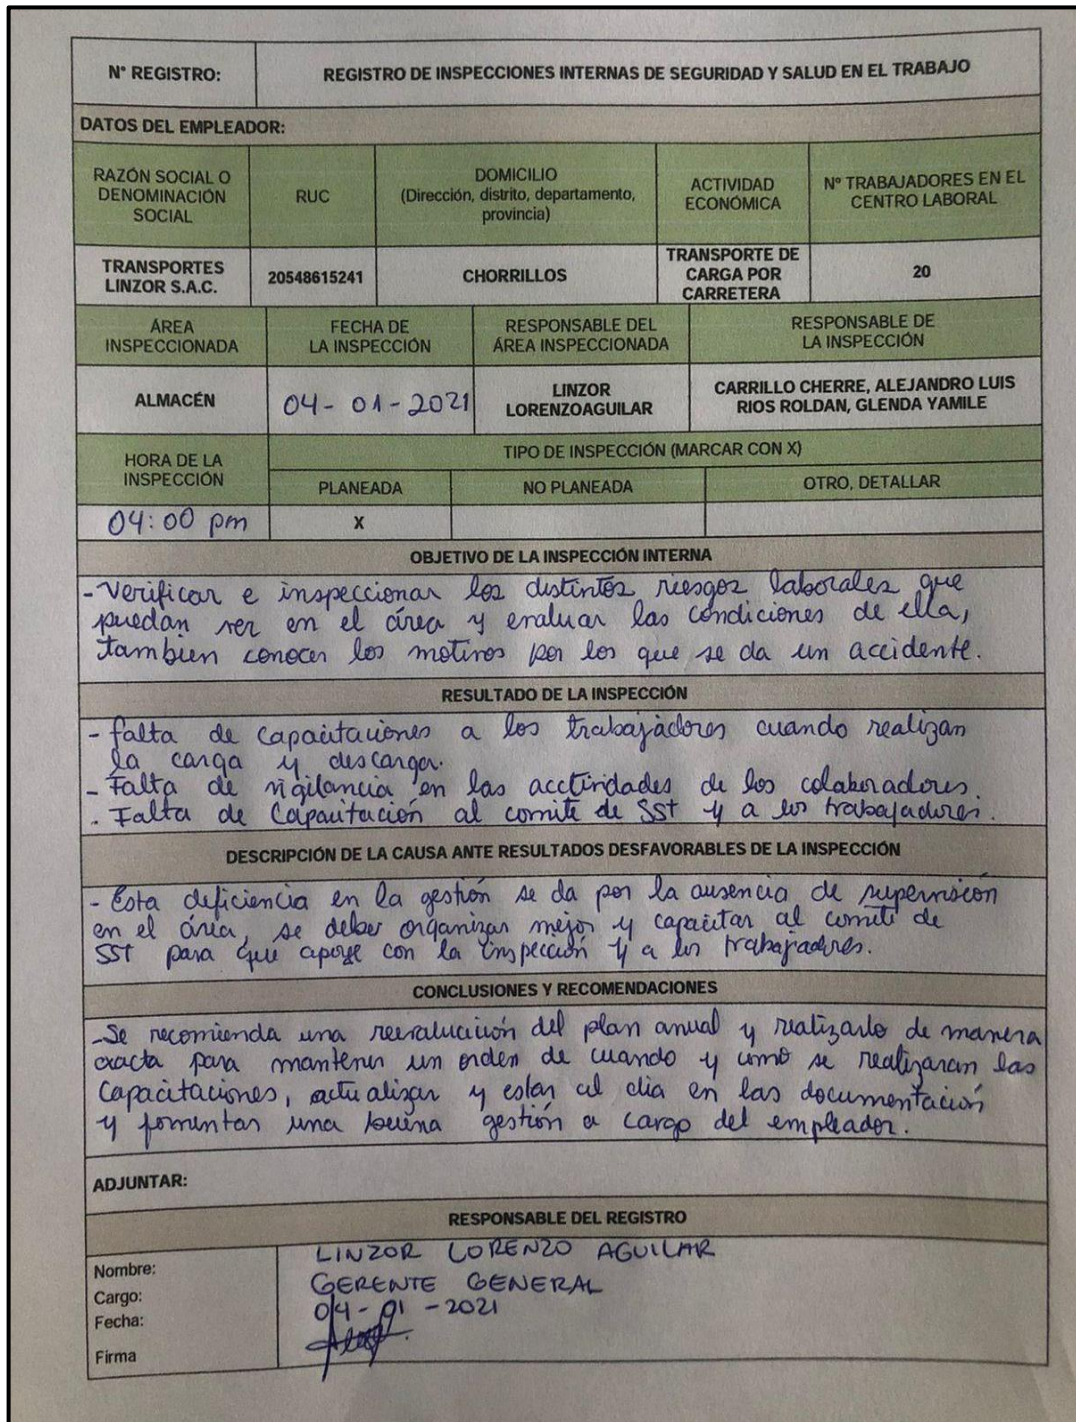 N° REGISTRO:
REGISTRO DE INSPECCIONES INTERNAS DE SEGURIDAD Y SALUD EN EL TRABAJO
DATOS DEL EMPLEADOR:
RAZÓN SOCIAL O
DENOMINACIÓN
SOCIAL
RUC
DOMICILIO
(Dirección, distrito, departamento,
provincia)
ACTIVIDAD
ECONÓMICA
Nº TRABAJADORES EN EL
CENTRO LABORAL
TRANSPORTES
LINZOR S.A.C.
20548615241
CHORRILLOS
TRANSPORTE DE
CARGA POR
CARRETERA
20
ÁREA
INSPECCIONADA
FECHA DE
LA INSPECCIÓN
RESPONSABLE DEL
ÁREA INSPECCIONADA
RESPONSABLE DE
LA INSPECCIÓN
ALMACÉN
04-01-2021
LINZOR
LORENZOAGUILAR
CARRILLO CHERRE, ALEJANDRO LUIS
RIOS ROLDAN, GLENDA YAMILE
HORA DE LA
INSPECCIÓN
TIPO DE INSPECCIÓN (MARCAR CON X)
PLANEADA
NO PLANEADA
OTRO, DETALLAR
04:00 pm
X
OBJETIVO DE LA INSPECCIÓN INTERNA
- Verificar e inspeccionar los distintos riesgos laborales que
puedan ser en el área y evaluar las condiciones de ella,
tambien conocer los motivos por los que se da un accidente.
RESULTADO DE LA INSPECCIÓN
- falta de capacitaciones a los trabajadores cuando realizan
la carga y descarga.
- Falta de vigilancia en las acctividades de los colaboradores.
. Falta de Capacitación al comite de SST y a los trabajadores.
DESCRIPCIÓN DE LA CAUSA ANTE RESULTADOS DESFAVORABLES DE LA INSPECCIÓN
- Esta deficiencia en la gestión se da por la ausencia de supervisión
en el área, se deber organizar mejor y capacitar al comite de
SST para que apoye con la inspección y a los trabajadores.
CONCLUSIONES Y RECOMENDACIONES
- Se recomienda una reevalucición del plan anual y realizarlo de manera
exacta para mantener un orden de cuando y como se realizaran las
Capacitaciones, actualizar y estar al dia en las documentación
y fomentar una buena gestión a cargo del empleador.
ADJUNTAR:
RESPONSABLE DEL REGISTRO
Nombre: LINZOR LORENZO AGUILAR
Cargo: GERENTE GENERAL
Fecha: 04-01-2021
Firma